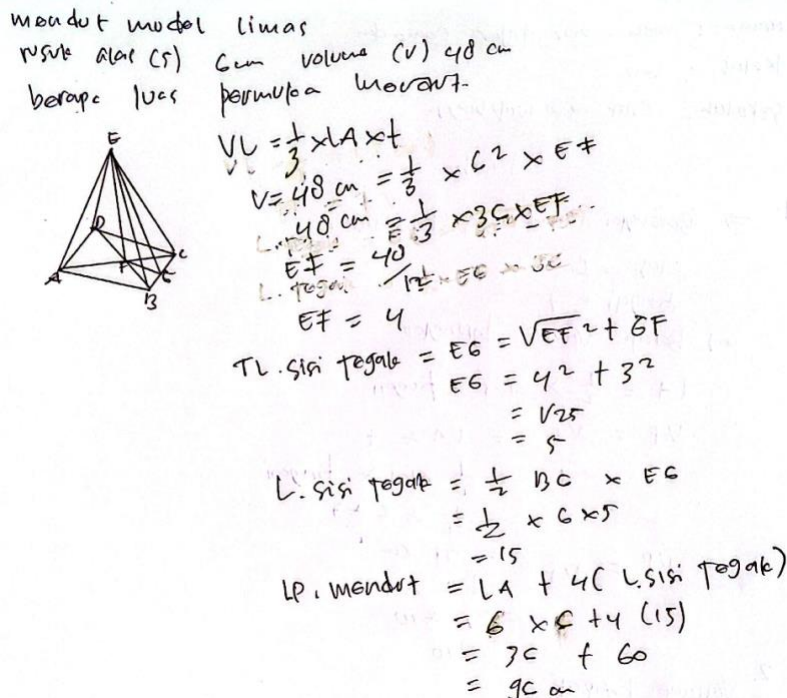 mendut model limas
rusuk alas (s) 6cm volume (v) 48 cm
berapa luas permukaa mendut
E
D
A
F
C
G
B
VL = 1/3 x LA x t
V = 48 cm = 1/3 x 6² x EF
48 cm = 1/3 x 36 x EF
EF = 48/12
EF = 4
TL. sisi tegak = EG = √EF² + GF
EG = 4² + 3²
= √25
= 5
L. sisi tegak = 1/2 BC x EG
= 1/2 x 6 x 5
= 15
LP. mendut = LA + 4( L. sisi tegak)
= 6 x 6 + 4 (15)
= 36 + 60
= 96 cm